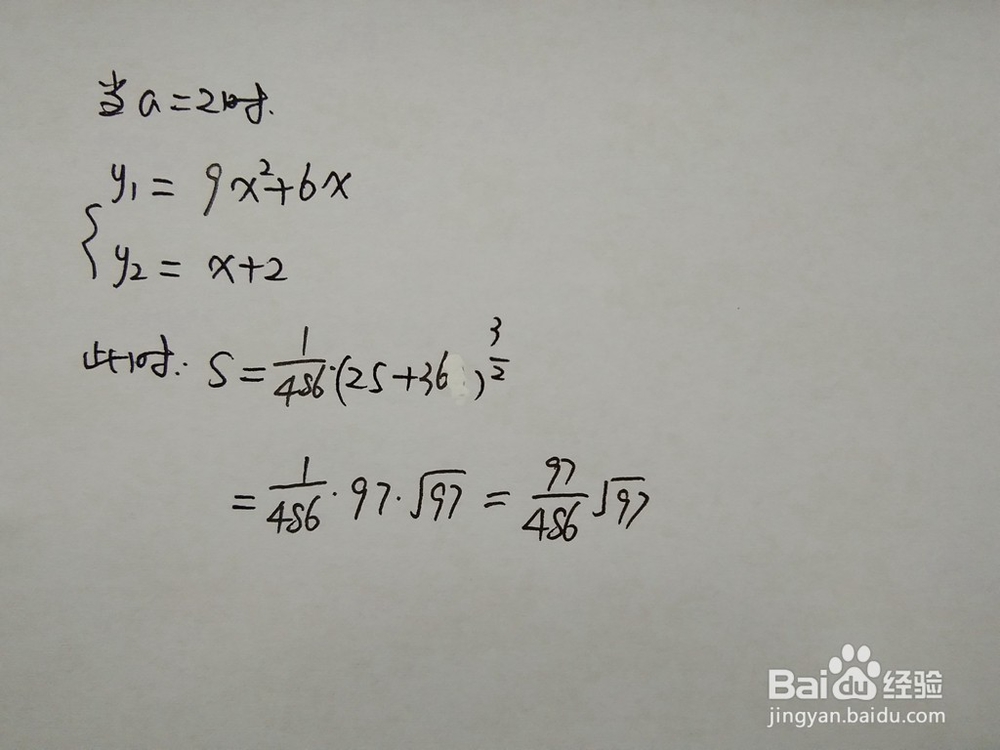 当a=2时.
y₁ = 9x²+6x
y₂ = x+2
此时: S = 1/486·(25+36 )^(3/2)
= 1/486 · 97 · √97 = 97/486 √97
Baidu 经验
jingyan.baidu.com